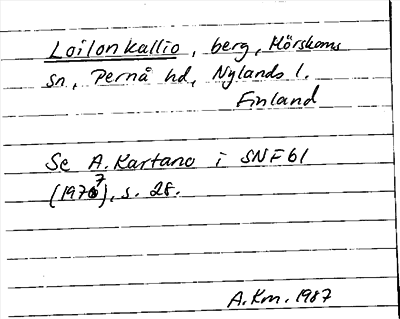 Loilonkallio, berg, Mörskoms
sn, Pernå hd, Nylands l.
Finland
Se A. Kartano i SNF 61
(1977), s. 28.
A.Km. 1987